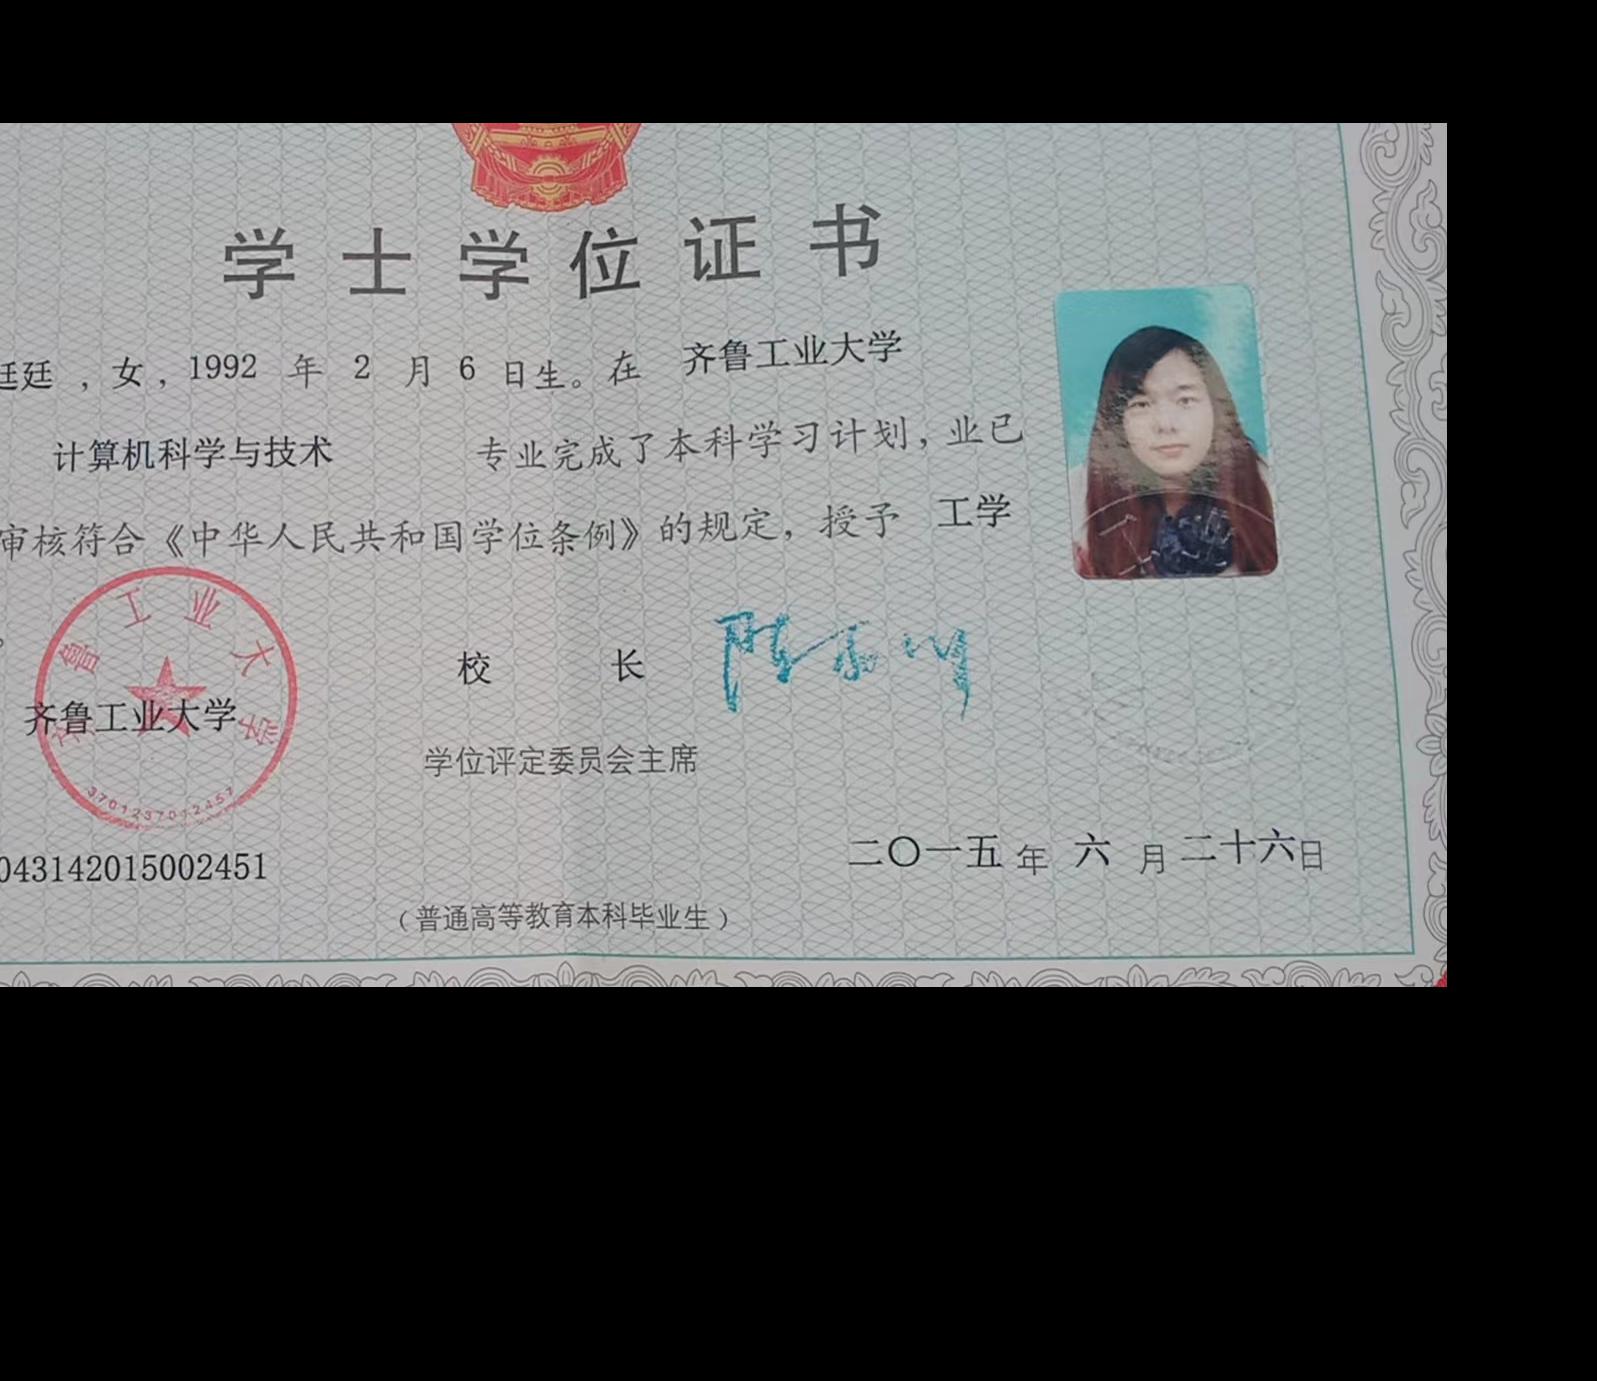 学士学位证书
廷廷 ，女，1992 年 2 月 6 日生。在 齐鲁工业大学
计算机科学与技术 专业完成了本科学习计划，业已
审核符合《中华人民共和国学位条例》的规定，授予 工学
鲁工业大学
校 长
齐鲁工业大学
学位评定委员会主席
3701237012457
043142015002451
二〇一五年 六 月 二十六日
（普通高等教育本科毕业生）